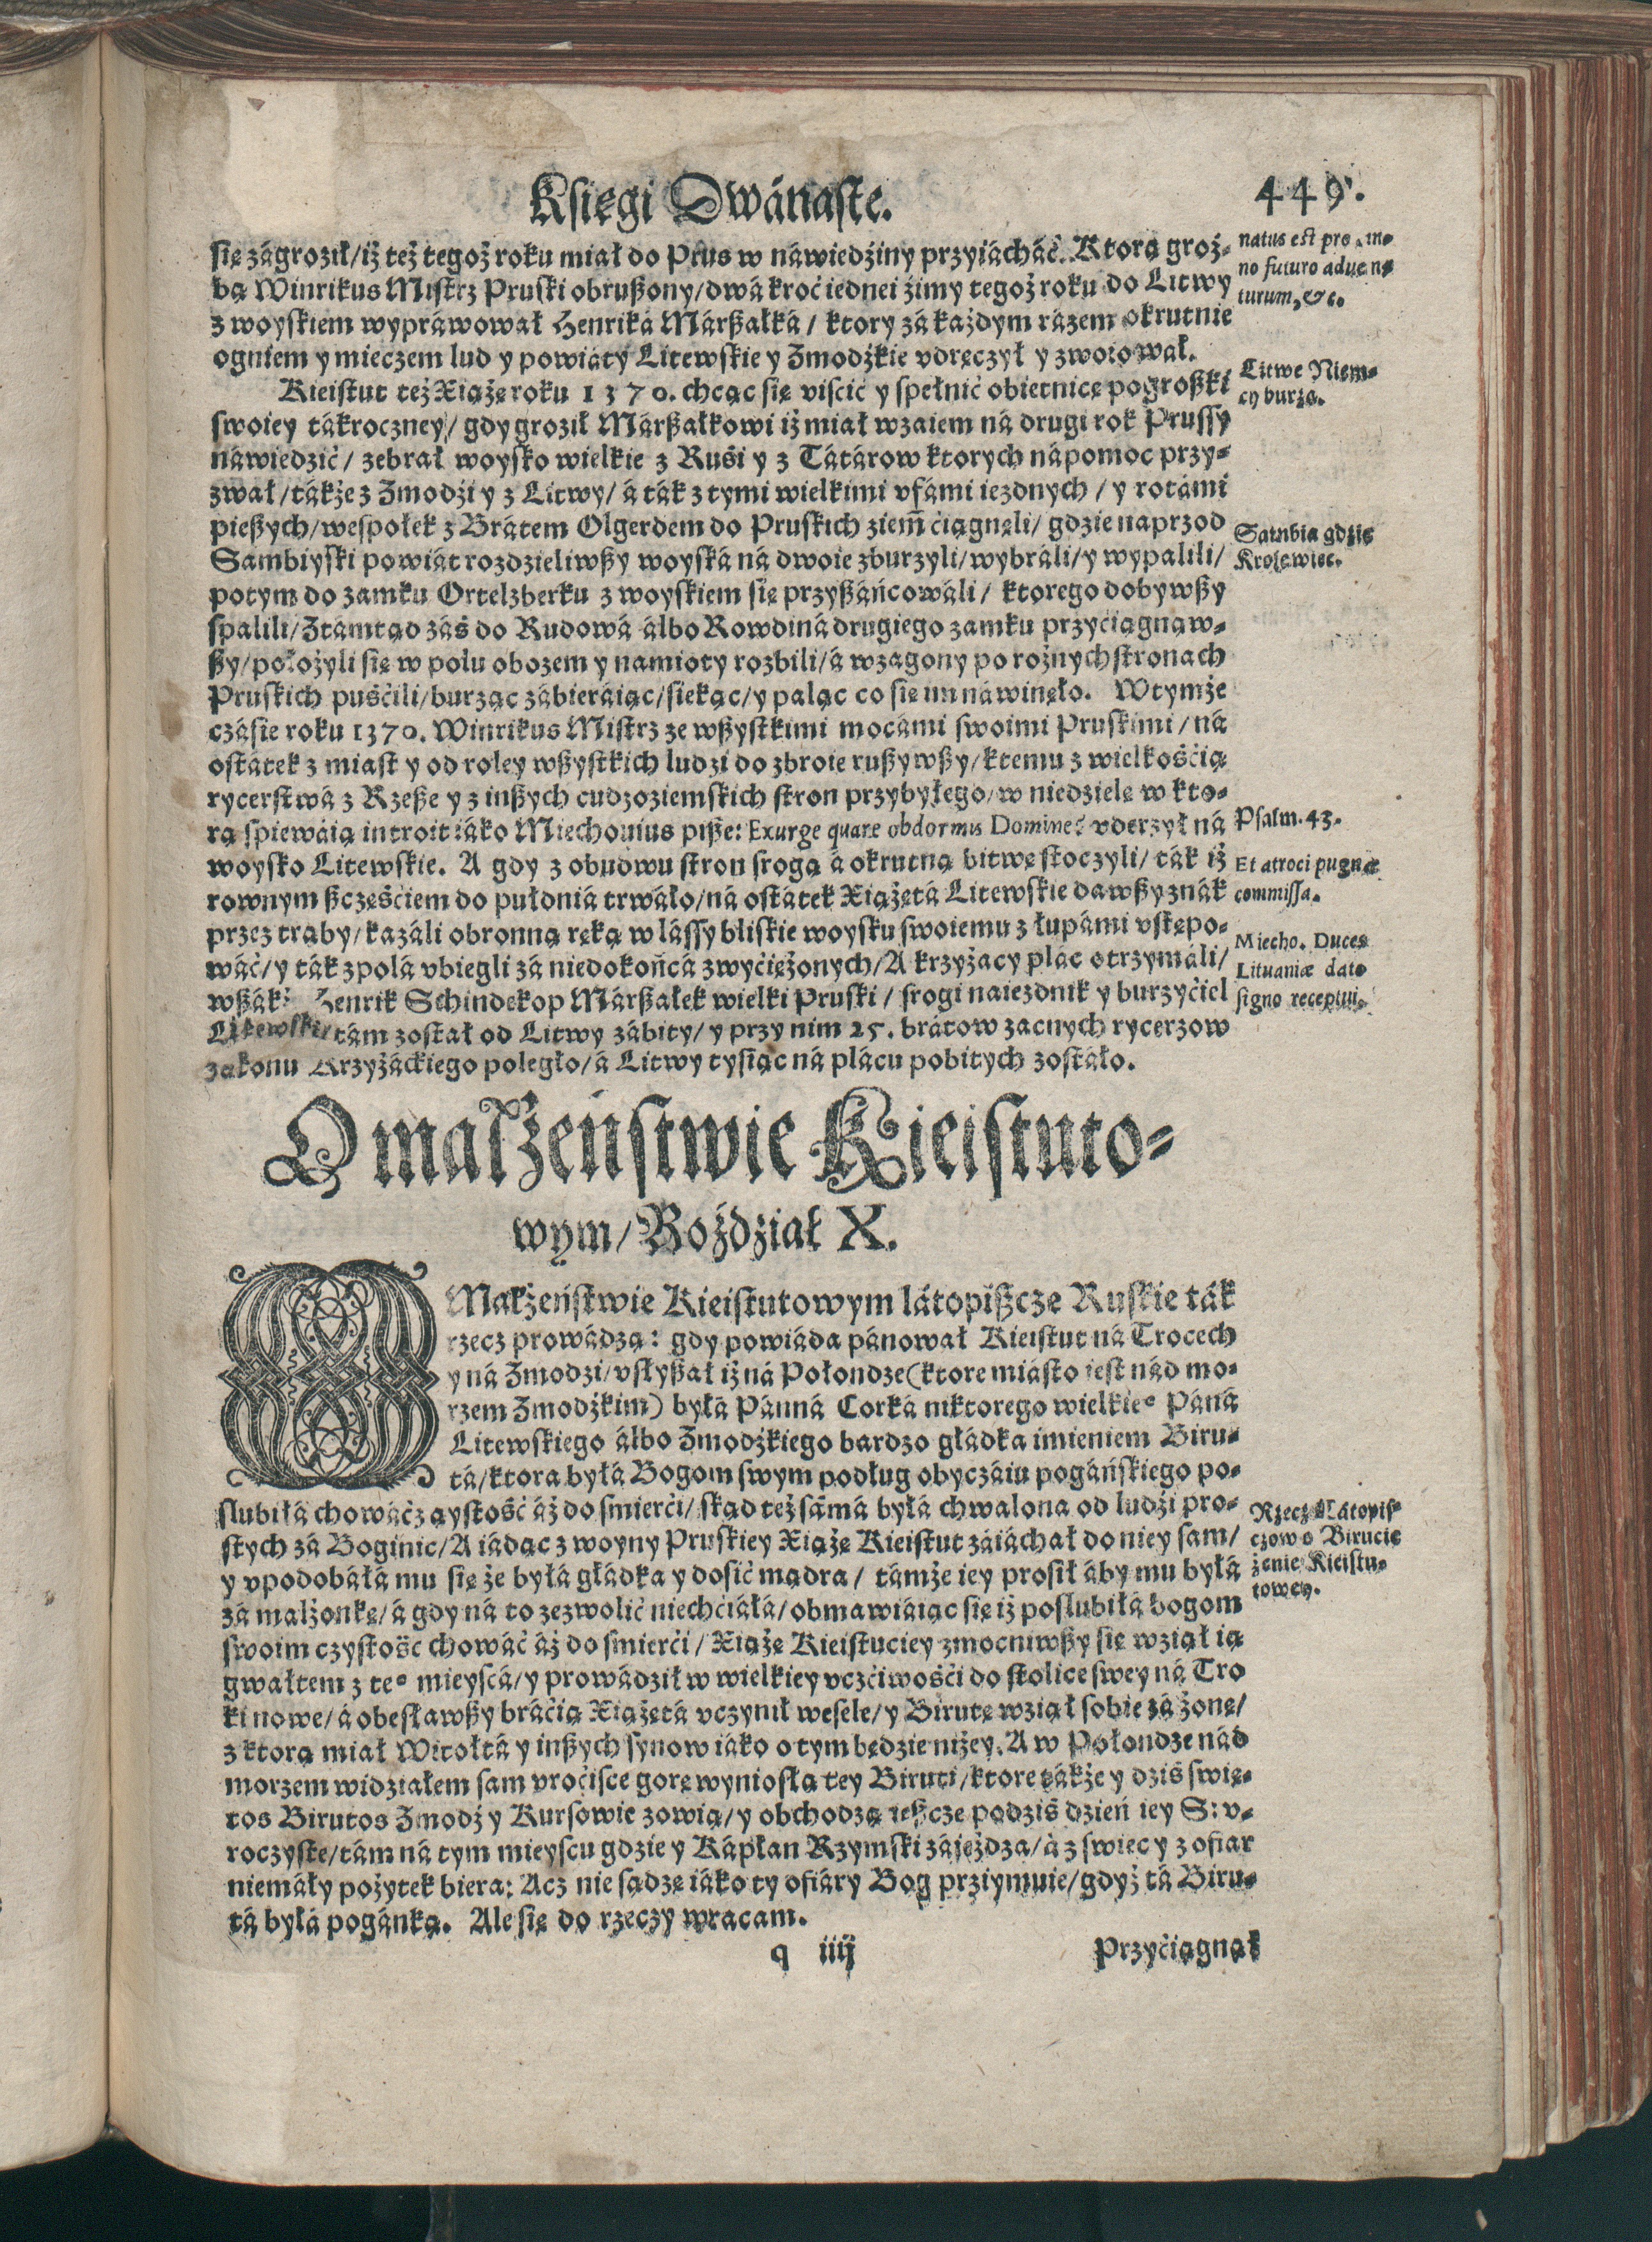 Księgi Dwánaste.
449.
się zágroził/iż też tegoż roku miał do Prus w náwiedźiny przyiácháć. Ktorą groź-
bą Winrikus Mistrz Pruski obrußony/dwá kroć iednei źimy tegoż roku do Litwy
z woyskiem wypráwował Henriká Márßałká/ ktory zá każdym rázem okrutnie
ogniem y mieczem lud y powiáty Litewskie y Zmodźkie vdręczył y zwoiował.
Kieistut też Xiążę roku 1370. chcąc się viscić y spełnić obietnicę pogroßki
swoiey tákroczney/ gdy groził Márßałkowi iż miał wzaiem ná drugi rok Prussy
náwiedzić/ zebrał woysko wielkie z Ruśi y z Tátárow ktorych nápomoc przy-
zwał/tákże z Zmodźi y z Litwy/ á ták z tymi wielkimi vfámi iezdnych/ y rotámi
pießych/wespołek z Brátem Olgerdem do Pruskich ziem̃ ciągnęli/ gdzie naprzod
Sambiyski powiát rozdzieliwßy woyská ná dwoie zburzyli/wybráli/y wypalili/
potym do zamku Ortelzberku z woyskiem się przyßáńcowáli/ ktorego dobywßy
spalili/Ztámtąd záś do Rudowá álbo Rowdiná drugiego zamku przyćiągnąw-
ßy/położyli się w polu obozem y namioty rozbili/á wzagony po rożnych stronach
Pruskich puśćili/burząc zábieráiąc/siekąc/y paląc co się im náwinęło. W tymże
czásie roku 1370. Winrikus Mistrz ze wßystkimi mocámi swoimi Pruskimi/ ná
ostátek z miast y od roley wßystkich ludzi do zbroie rußywßy/ktemu z wielkośćią
rycerstwá z Rzeße y z inßych cudzoziemskich stron przybyłego/w niedzielę w kto-
rą śpiewáią introit iáko Miechouius piße: Exurge quare obdormis Domine? vderzył ná
woysko Litewskie. A gdy z obudwu stron srogą á okrutną bitwę stoczyli/ ták iż
rownym ßcześćiem do pułdniá trwáło/ná ostátek Xiążętá Litewskie dawßy znák
przez trąby/kazáli obronną ręką w lássy bliskie woysku swoiemu z łupámi vstępo-
wáć/y ták z polá vbiegli zá niedokońcá zwyćiężonych/A krzyżacy plac otrzymáli/
wßák: Henrik Schindekop Márßałek wielki Pruski/ srogi naiezdnik y burzyćiel
Litewski/tám został od Litwy zábity/ y przy nim 25. brátow zacnych rycerzow
zakonu Krzyżáckiego poległo/á Litwy tysiąc ná plácu pobitych zostáło.
natus est pro ... an-
no futuro aduen-
turum, &c.
Litwę Niem-
cy burzą.
Sambia gdzie
Krolewiec.
Psalm. 43.
Et atroci pugna
commissa.
Miecho. Duces
Lituaniæ dato
signo receptui.
O małżeństwie Kieistuto-
wym/ Rozdział X.
O Małżeństwie Kieistutowym látopißcze Ruskie ták
rzecz prowádzą: gdy powiáda pánował Kieistut ná Trocech
y ná Zmodzi/vsłyßał iż ná Połondze(ktore miásto iest nád mo-
rzem Zmodźkim) byłá Pánná Corká niktorego wielkieº Páná
Litewskiego álbo Zmodźkiego bardzo gładka imieniem Biru-
tá/ktora byłá Bogom swym podług obyczáiu pogáńskiego po-
slubiłá chowáć czystość áż do smierći/ skąd też sámá byłá chwalona od ludźi pro-
stych zá Boginię/A iádąc z woyny Pruskiey Xiążę Kieistut záiáchał do niey sam/
y vpodobáłá mu się że byłá gładka y dosić mądra/ támże iey prosił áby mu byłá
zá małżonkę/á gdy ná to zezwolić niechćiáłá/obmawiáiąc się iż poslubiłá bogom
swoim czystość chowáć áż do smierći/ Xiążę Kieistut iey zmocniwßy się wziął ią
gwałtem z teº mieyscá/y prowádził w wielkiey vczćiwośći do stolice swey ná Tro
ki nowe/á obesławßy bráćią Xiążętá vczynił wesele/y Birutę wziął sobie zá żonę/
z ktorą miał Witołtá y inßych synow iáko o tym będzie niżey. A w Połondze nád
morzem widziałem sam vroćisce gorę wyniosłą tey Biruti/ktore tákże y dziś swię-
tos Birutos Zmodź y Kursowie zowią/y obchodzą ießcze podziś dzień iey S: v-
roczyste/tám ná tym mieyscu gdzie y Kápłan Rzymski záieżdza/á z swiec y z ofiar
niemáły pożytek biera: Acz nie sądzę iáko ty ofiáry Bog prziymuie/gdyż tá Biru-
tá byłá pogánką. Ale się do rzeczy wracam.
Rzecz Látopis-
czow o Birucie
żenie Kieistu-
towey.
q iiij
Przyćiągnął